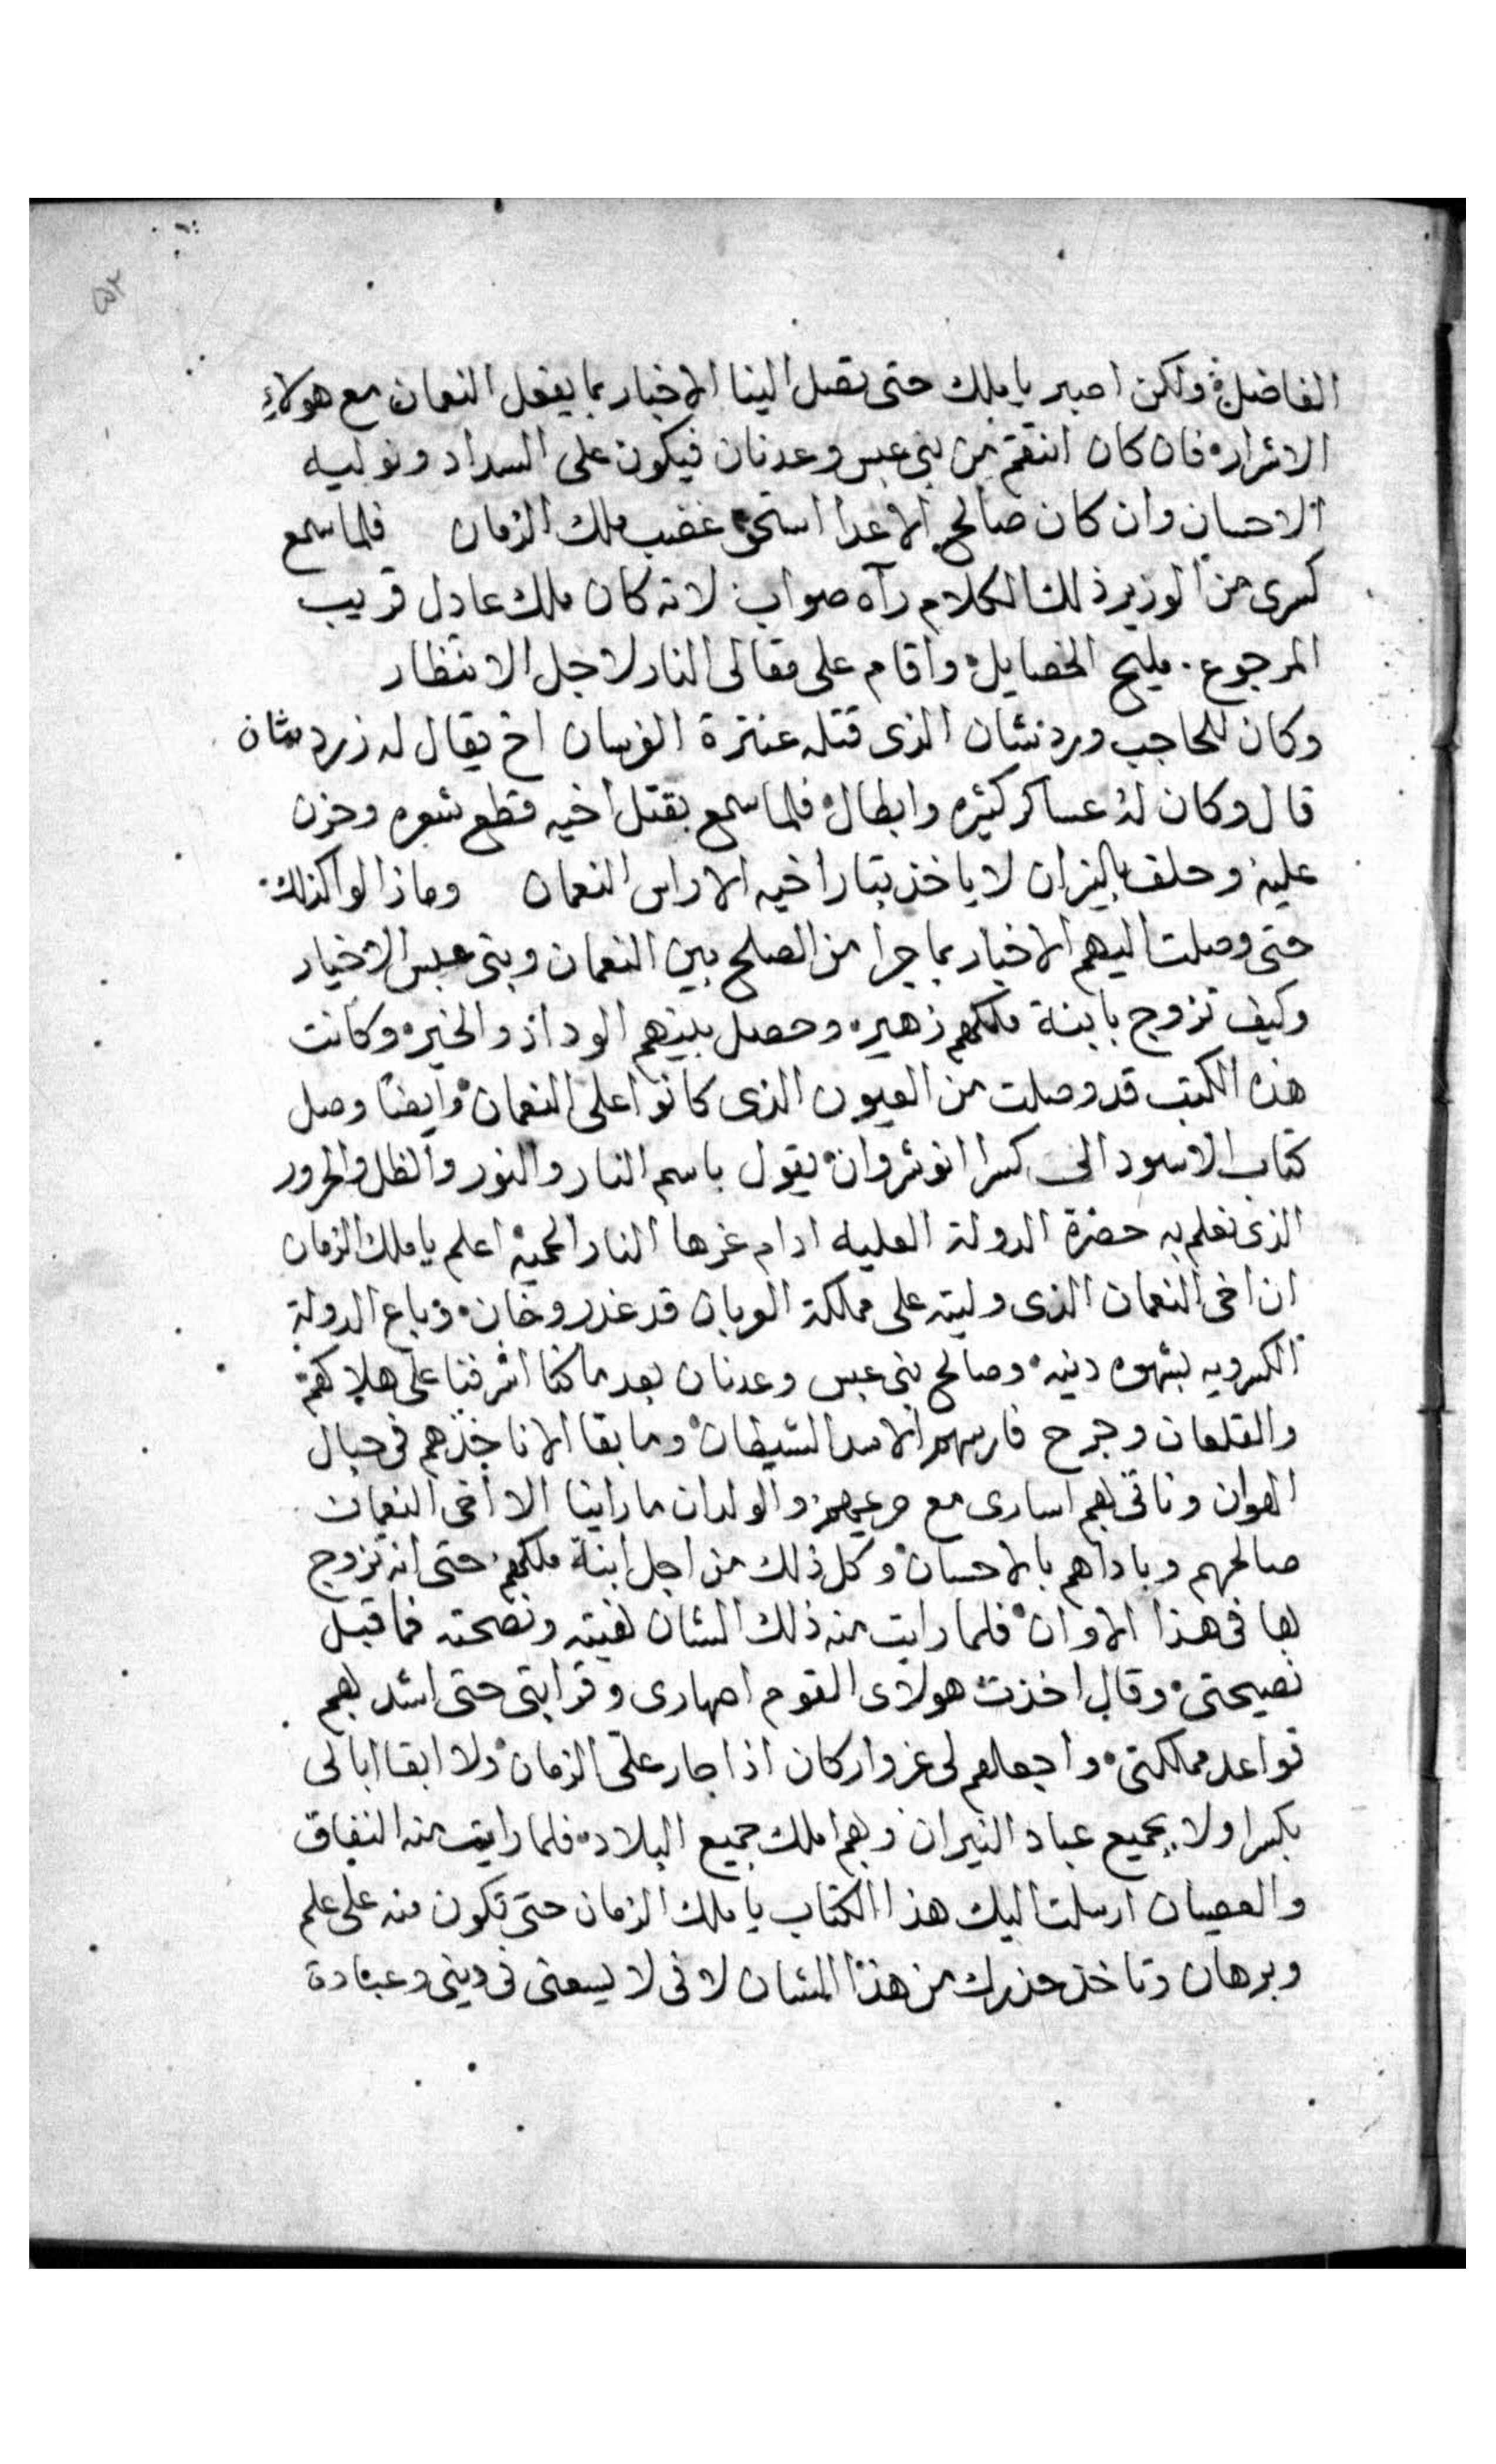 ٥٢
الفاضل ولكن اصبر يا ملك حتى تصل الينا الاخبار بما يفعل النعمان مع هولاء
الاشرار فان كان انتقم من بني عبس وعدنان فيكون على السداد ونوليه
الاحسان وان كان صالح الاعدا استحق غضب ملك الزمان فلما سمع
كسرى من الوزير ذلك الكلام رآه صواب لانه كان ملك عادل قريب
المرجوع مليح الخصايل واقام على مقالى النار لاجل الانتظار
وكان للحاجب وردنشان الذى قتله عنترة الفرسان اخ يقال له زردشان
قال وكان له عساكر كثيره وابطال فلما سمع بقتل اخيه قطع شعره وحزن
عليه وحلف بالنيران لا ياخذ بتار اخيه الا راس النعمان وما زالوا كذلك
حتى وصلت اليهم الاخبار بما جرا من الصلح بين النعمان وبنى عبس الاخيار
وكيف تزوج بابنة ملكهم زهير وحصل بينهم الوداد والخير وكانت
هذه الكتب قد وصلت من العيون الذى كانوا على النعمان وايضا وصل
كتاب الاسود الى كسرا انوشروان يقول باسم النار والنور والظل والحرور
الذى نعلم به حضرة الدولة العليه ادام عزها النار المحميه اعلم يا ملك الزمان
ان اخى النعمان الذى وليته على مملكة العربان قد غدر وخان وباع الدولة
الكسرويه بشهوه دنيه وصالح بنى عبس وعدنان بعد ما كنا اشرفنا على هلاكهم
والقلعان وجرح فارسهم الاسد الشيطان وما بقا الا ناخذهم فى حبال
الهوان وناتى بهم اسارى مع حريمهم والولدان ما راينا الا اخى النعمان
صالحهم وباداهم بالاحسان وكل ذلك من اجل ابنة ملكهم حتى انه تزوج
بها فى هذا الاوان فلما رايت منه ذلك الشان نهيته ونصحته فما قبل
نصيحتى وقال اخذت هولاى القوم اصهارى وقرابتى حتى اشد بهم
قواعد مملكتى واجعلهم لى عز واركان اذا جار على الزمان ولا ابقا ابالى
بكسرا ولا بجميع عباد النيران وبهم املك جميع البلاد فلما رايت منه النفاق
والعصيان ارسلت اليك هذا الكتاب يا ملك الزمان حتى تكون منه على علم
وبرهان وتاخذ حذرك من هذا الشان لانى لا يسعنى فى دينى وعبادة